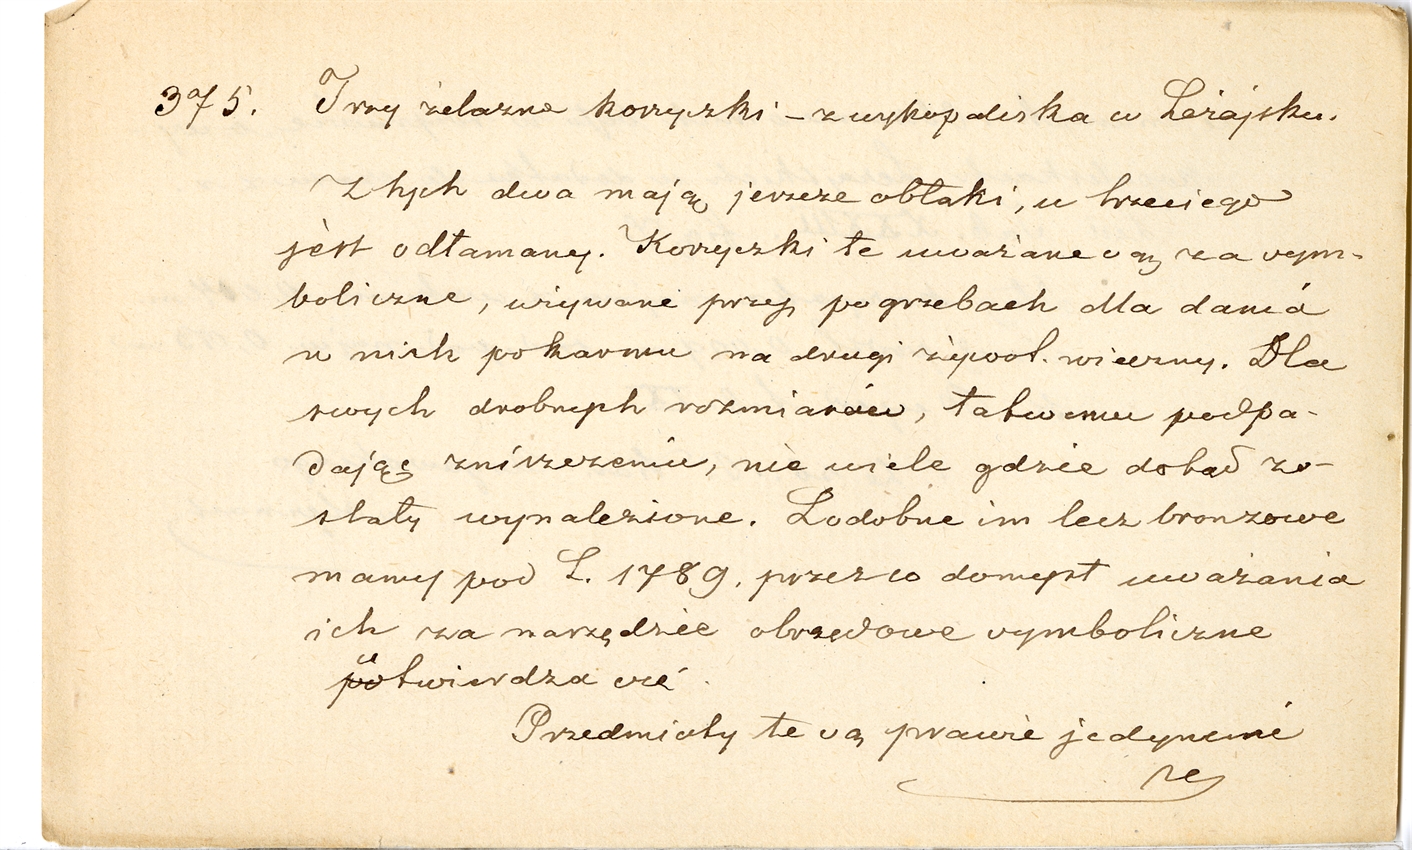 375. Trzy żelazne koszyczki – z wykopaliska w Leżajsku.
Z tych dwa mają jeszcze obłaki, u trzeciego
jest odłamany. Koszyczki te uważane są za sym-
boliczne, używane przy pogrzebach dla dania
w nich pokarmu na drugi żywot wieczny. Dla
swych drobnych rozmiarów, łatwemu podpa-
dające zniszczeniu, nie wiele gdzie dotąd zo-
stały wynalezione. Podobne im lecz bronzowe
mamy pod L. 1789, przez co domysł uważania
ich za narzędzie obrzędowe symboliczne
utwierdza się.
Przedmioty te są prawie jedynemi